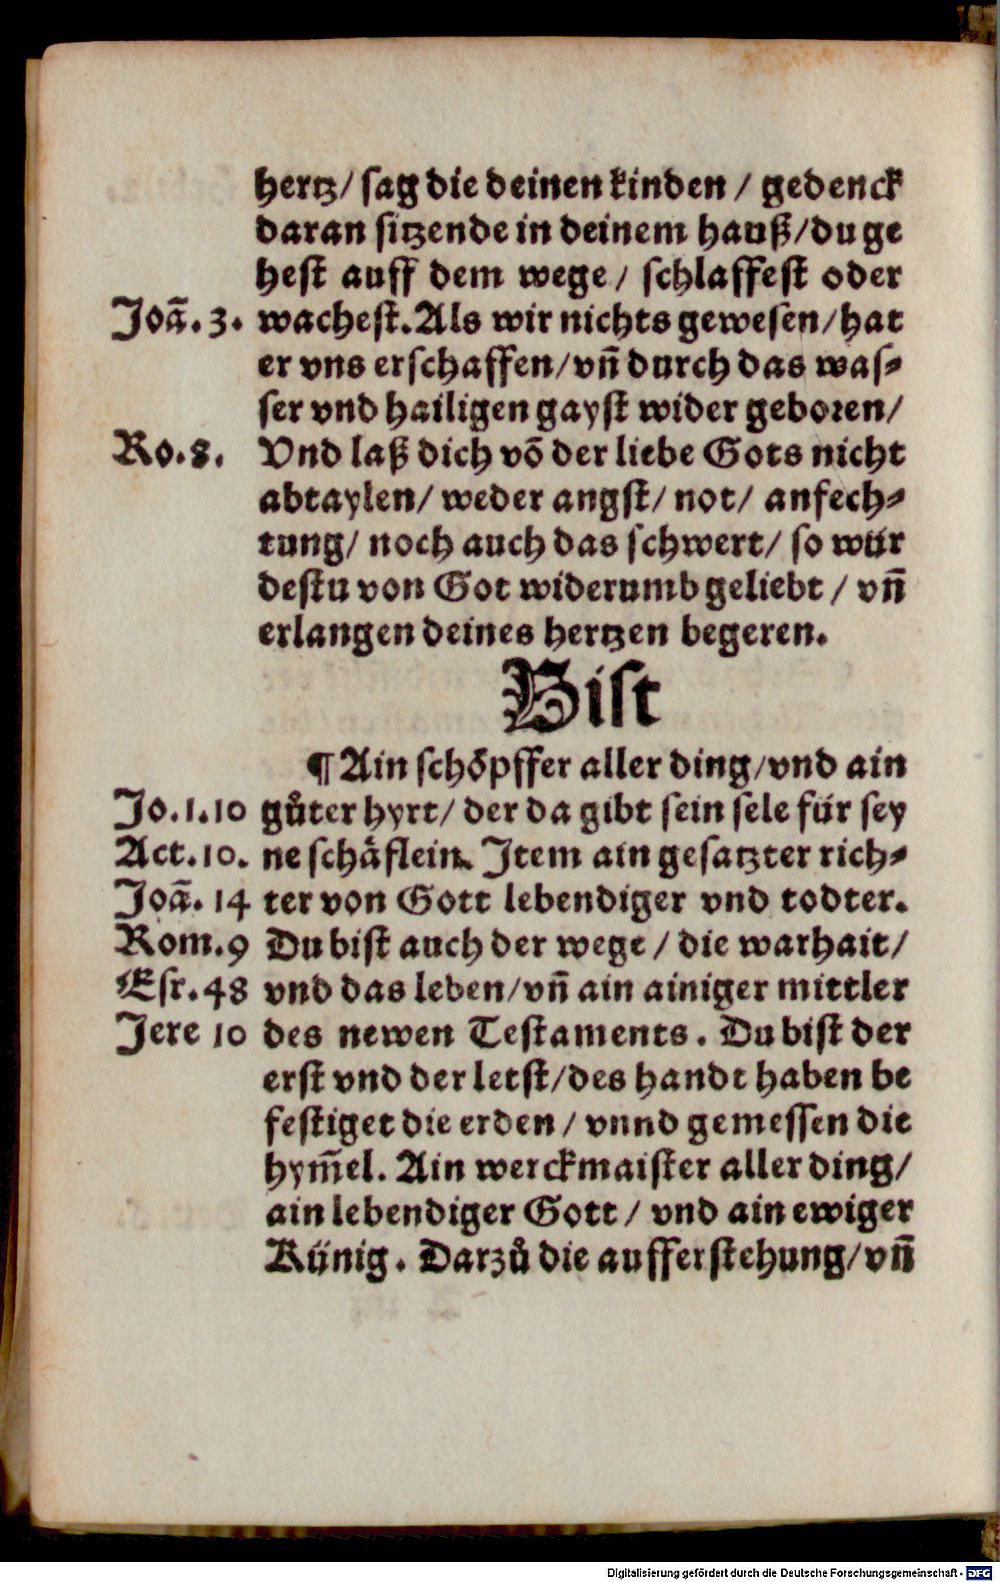 hertz/ sag die deinen kinden / gedenck
daran sitzende in deinem hauß/du ge
hest auff dem wege / schlaffest oder
Joā. 3. wachest. Als wir nichts gewesen/hat
er vns erschaffen/vñ durch das was⸗
ser vnd hailigen gayst wider geboren/
Ro. 8. Vnd laß dich võ der liebe Gots nicht
abtaylen/ weder angst/ not/ anfech⸗
tung/ noch auch das schwert/ so wür
destu von Got widerumb geliebt / vñ
erlangen deines hertzen begeren.
Bist
¶ Ain schöpffer aller ding/vnd ain
Jo. 1. 10 gůter hyrt/ der da gibt sein sele für sey
Act. 10. ne schäflein. Item ain gesatzter rich⸗
Joā. 14 ter von Gott lebendiger vnd todter.
Rom. 9 Du bist auch der wege / die warhait/
Esr. 48 vnd das leben/vñ ain ainiger mittler
Jere 10 des newen Testaments. Du bist der
erst vnd der letst/des handt haben be
festiget die erden / vnnd gemessen die
hym̄el. Ain werckmaister aller ding/
ain lebendiger Gott / vnd ain ewiger
Künig. Darzů die aufferstehung/vñ
Digitalisierung gefördert durch die Deutsche Forschungsgemeinschaft - DFG